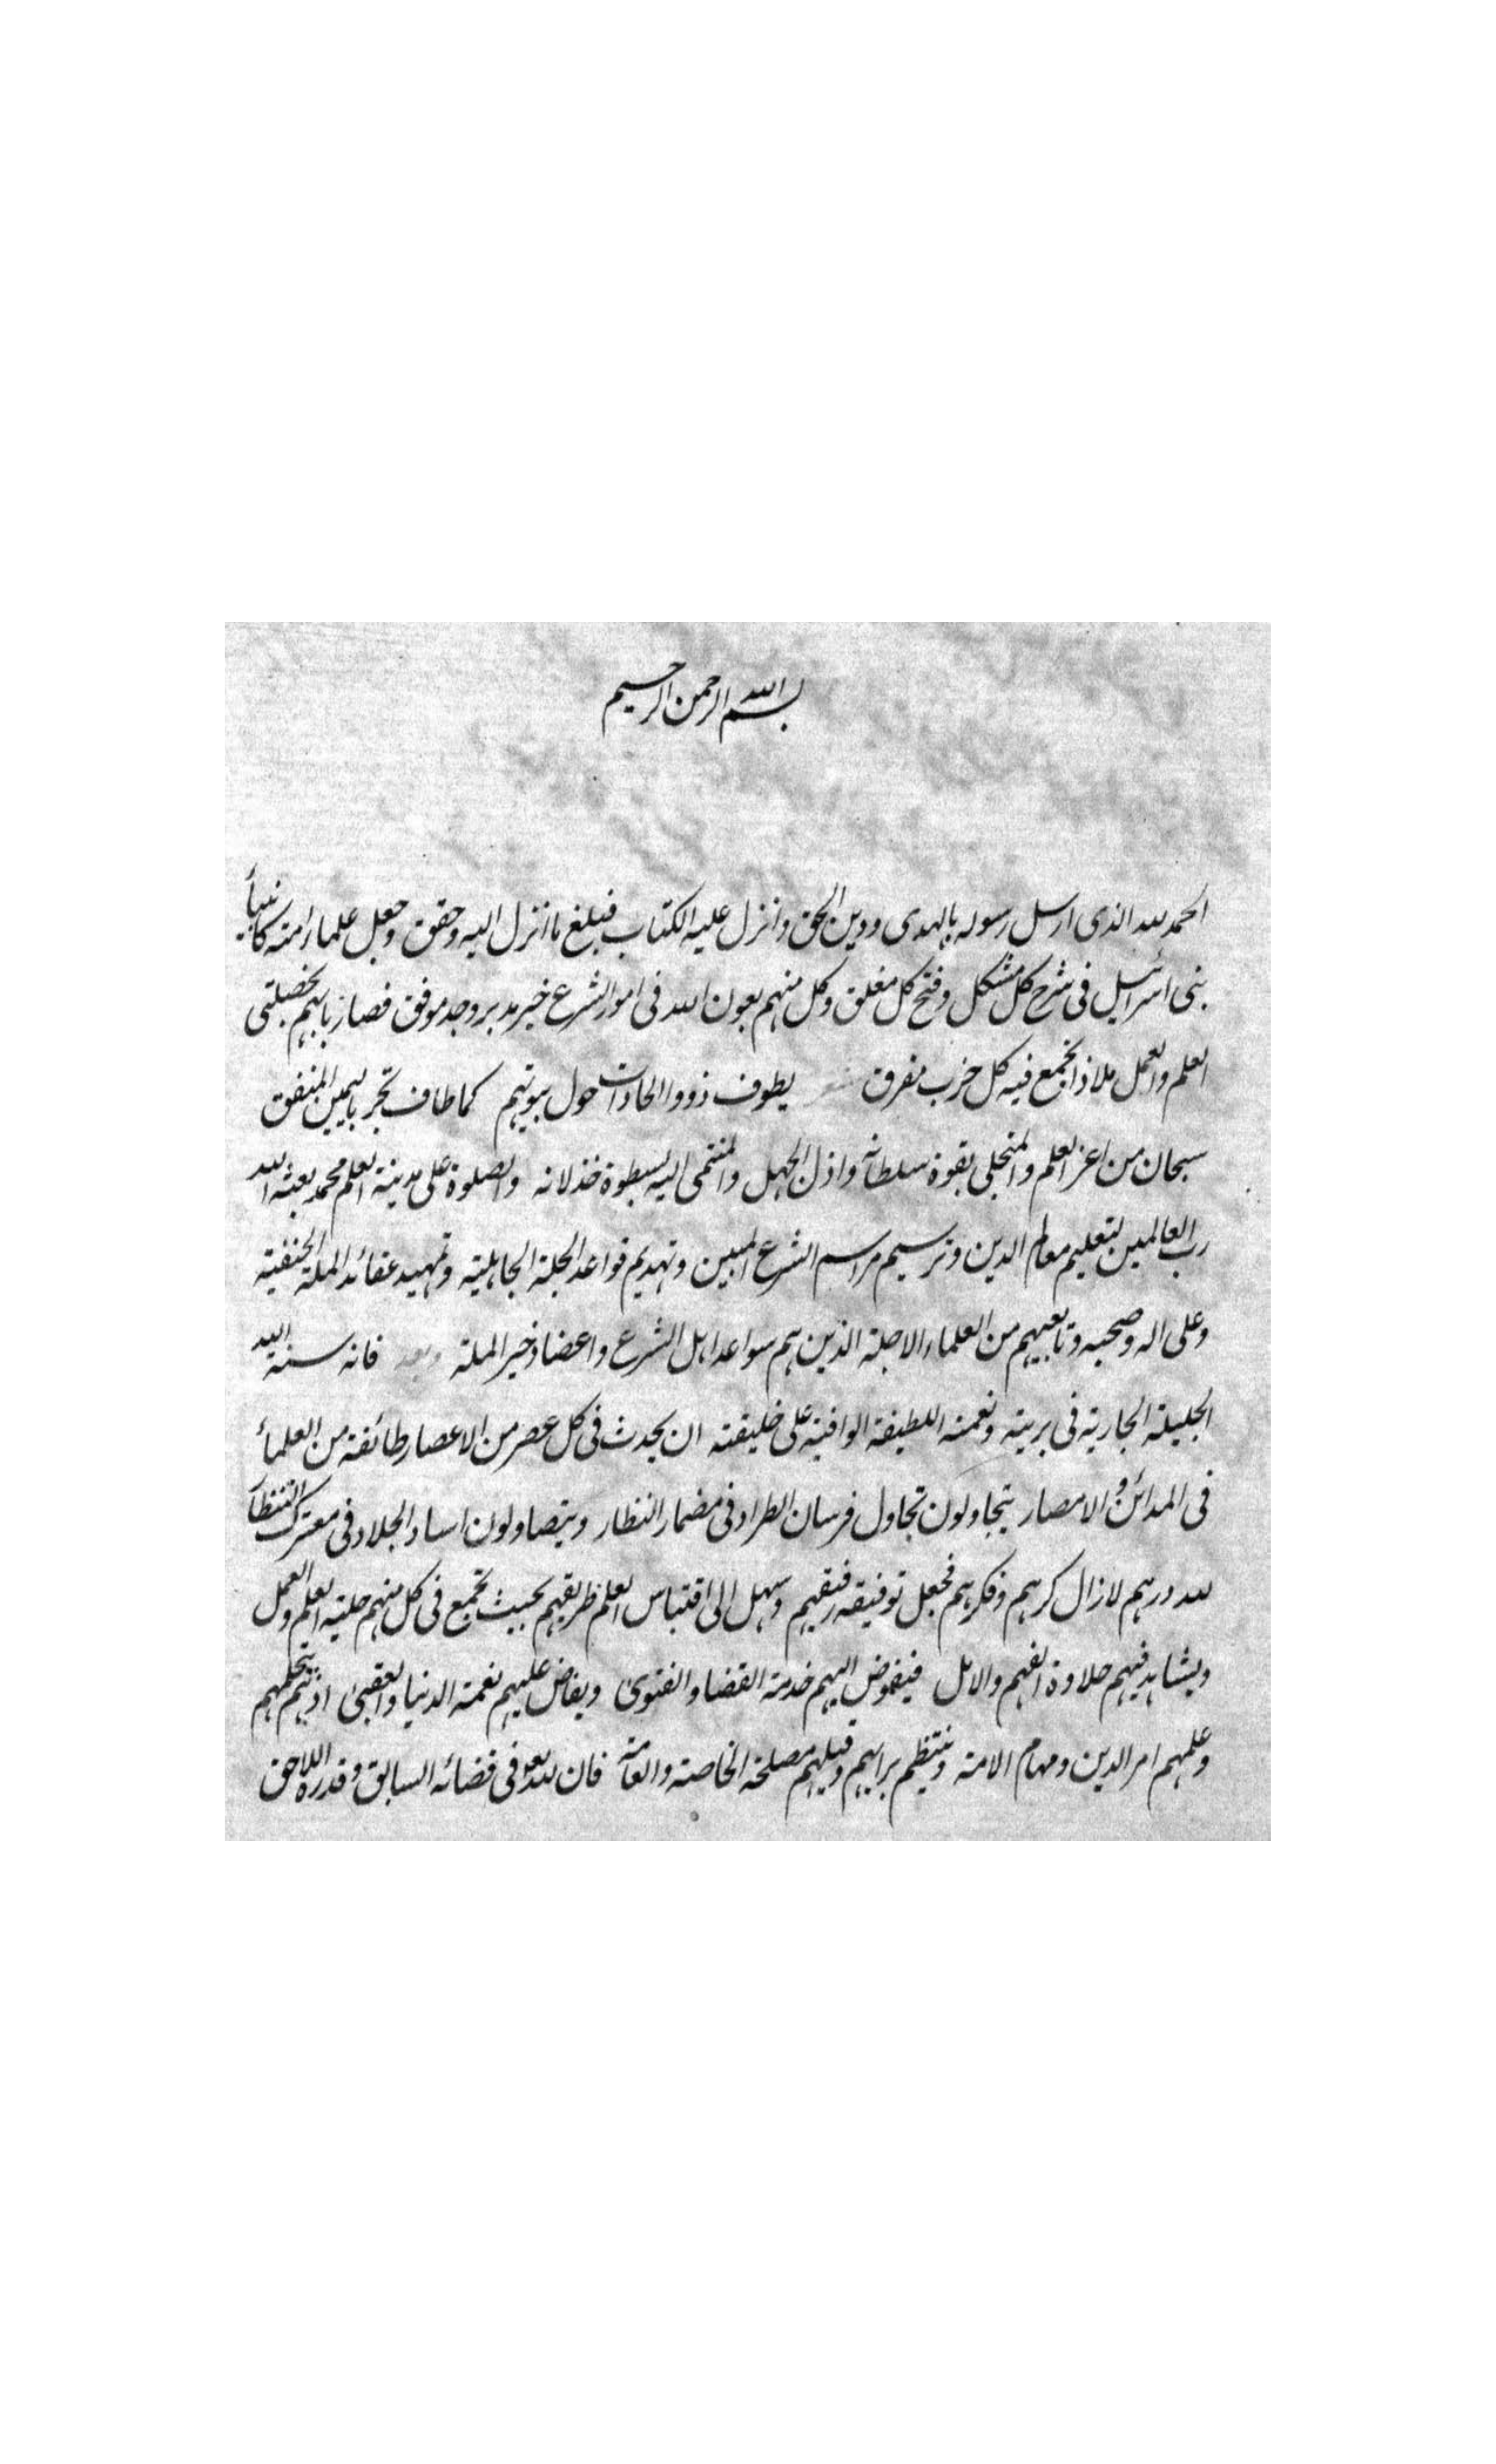 بسم الله الرحمن الرحيم
الحمد لله الذى ارسل رسوله بالهدى ودين الحق وانزل عليه الكتاب فبلغ ما انزل اليه وحقق وجعل علماء امته كانبياء
بنى اسرائيل فى شرح كل مشكل وفتح كل مغلق وكل منهم بعون الله فى امور الشرع خير مدبر وجد موفق فصار بابهم بخصلتى
العلم والعمل ملاذا تجمع فيه كل حزب مفرق شعر يطوف ذووا الحاجات حول بيوتهم كما طاف تجر باليمين المنفق
سبحان من اعز العلم والمتحلى بقوة سلطانه واذل الجهل والمنتمى اليه بسطوة خذلانه والصلوة على مدينة العلم محمد بعثه الله
رب العالمين لتعليم معالم الدين وترسيم مراسم الشرع المبين وتهديم قواعد الجلة الجاهلية وتمهيد عقائد الملة الحنفية
وعلى اله وصحبه وتابعيهم من العلماء الاجلة الذين هم سواعد اهل الشرع واعضاد خير الملة وبعد فانه سنة الله
الجليلة الجارية فى بريته ونعمته اللطيفة الوافية على خليقته ان يحدث فى كل عصر من الاعصار طائفة من العلماء
فى المدائن والامصار يتجاولون تجاول فرسان الطراد فى مضمار النظار ويتصاولون اساد الجلاد فى معترك التنظار
لله درهم لازال كرهم وفكرهم فجعل توفيقه رفيقهم وسهل الى اقتباس العلم طريقهم بحيث تجمع فى كل منهم حلية العلم والعمل
ويشاهد فيهم حلاوة الفهم والامل فيفوض اليهم خدمة القضا والفتوى ويفاض عليهم نعمة الدنيا والعقبى اذ يتم بحكمهم
وعلمهم امر الدين ومهام الامة وينتظم برايهم وقيلهم مصلحة الخاصة والعامة فان لله تعالى فى قضائه السابق وقدره اللاحق